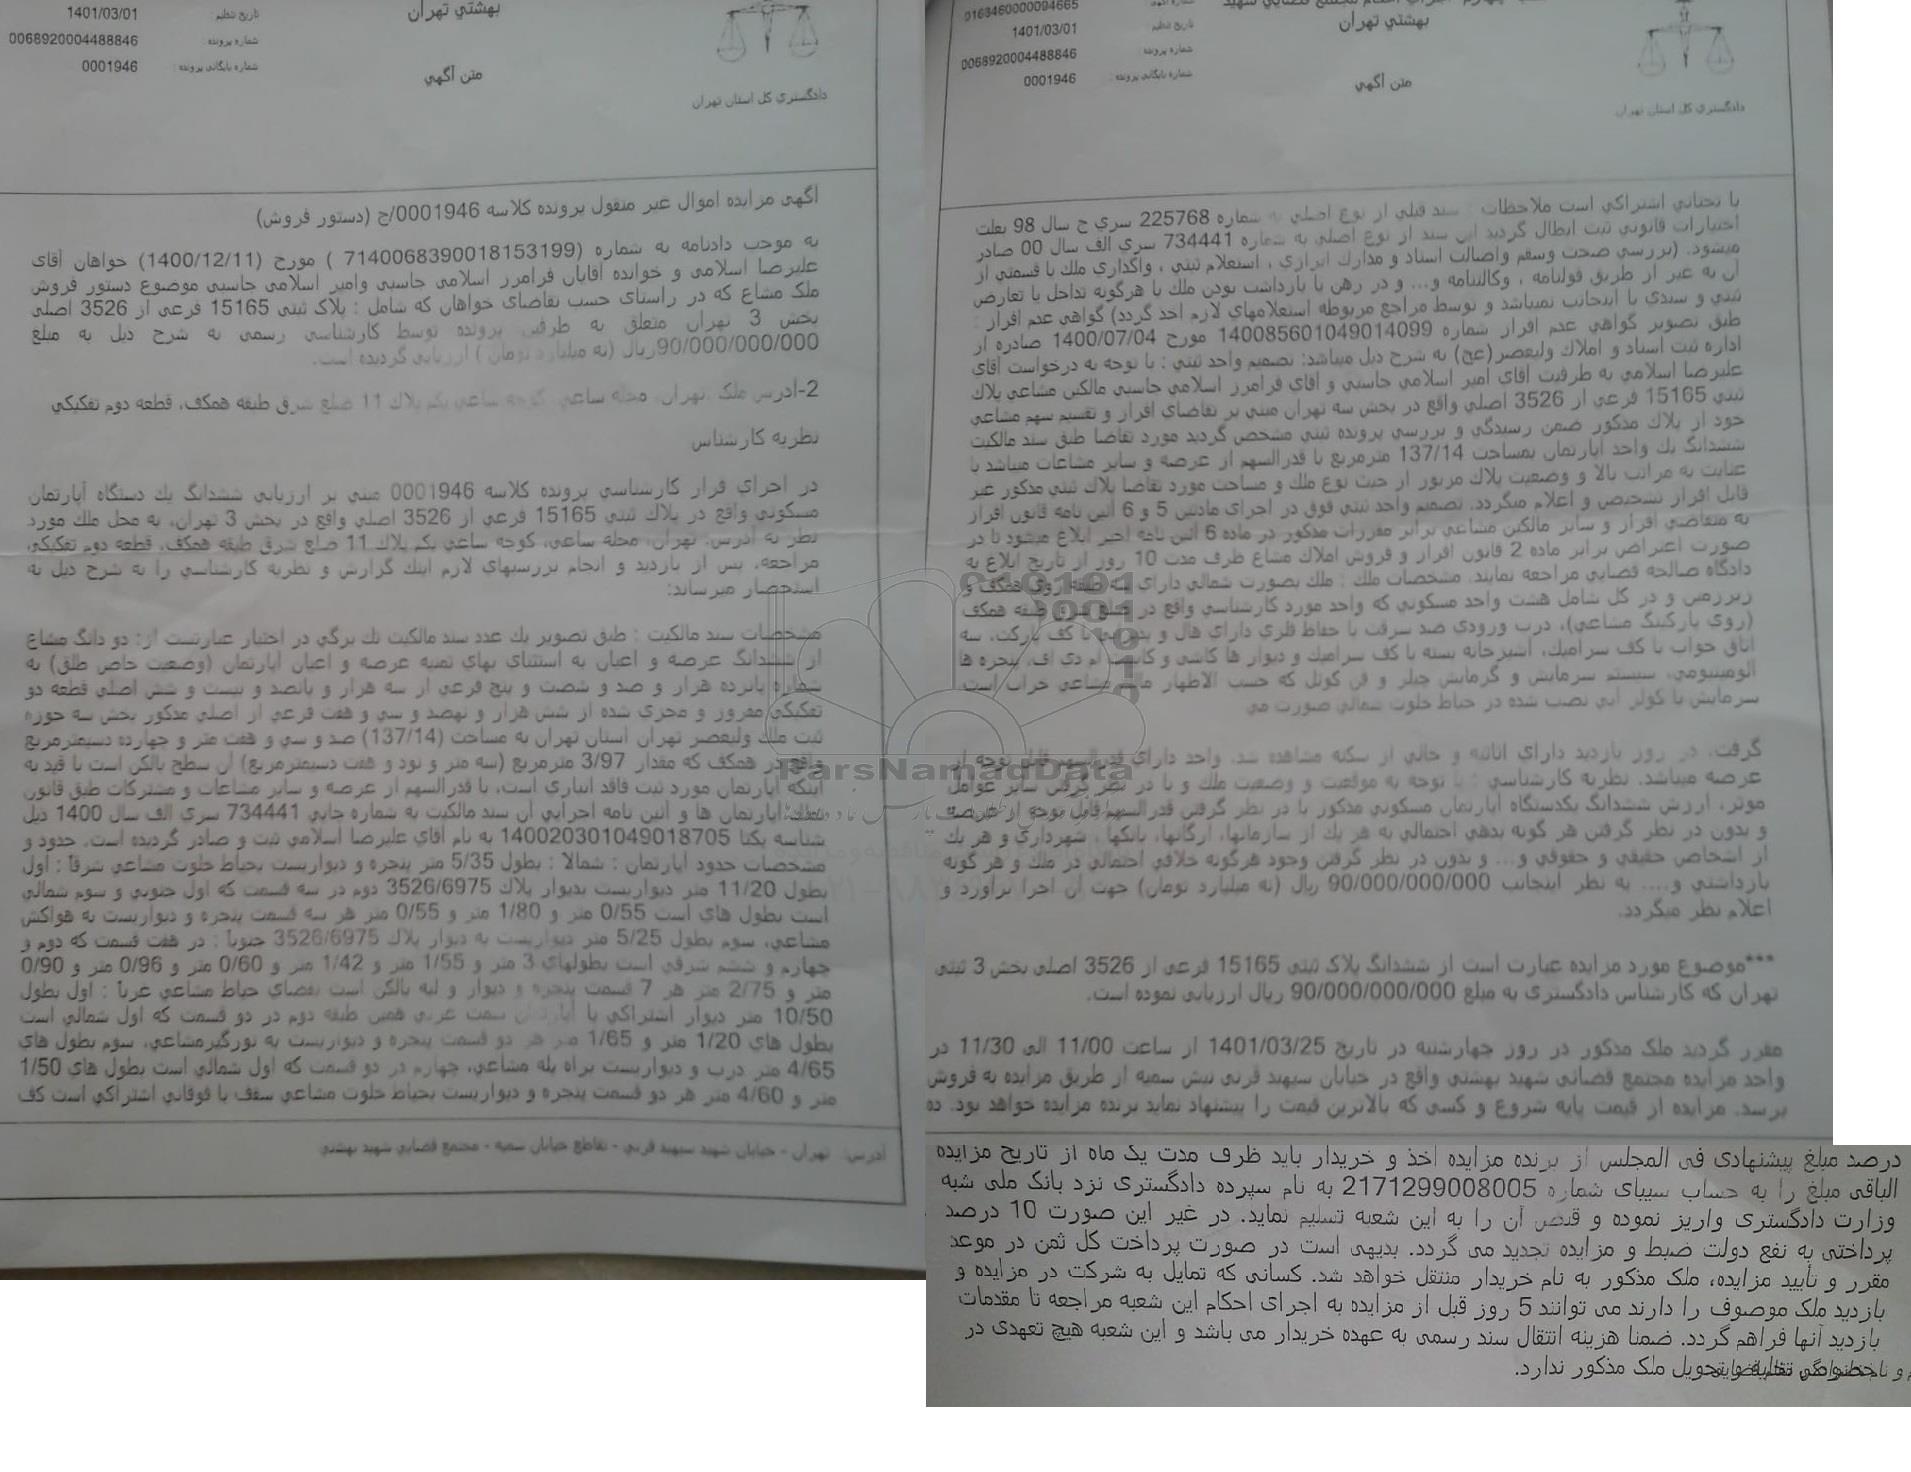 بهشتي تهران
تاریخ تنظیم : 1401/03/01
شماره پرونده : 0068920004488846
شماره بایگانی پرونده : 0001946
متن آگهي
دادگستري کل استان تهران
آگهی مزایده اموال غیر منقول پرونده کلاسه 0001946/ج (دستور فروش)
به موجب دادنامه به شماره (7140068390018153199 ) مورخ (1400/12/11) خواهان آقای
علیرضا اسلامی و خوانده آقایان فرامرز اسلامی جاسبی وامیر اسلامی جاسبی موضوع دستور فروش
ملک مشاع که در راستای حسب تقاضای خواهان که شامل : پلاک ثبتی 15165 فرعی از 3526 اصلی
بخش 3 تهران متعلق به طرفین پرونده توسط کارشناسی رسمی به شرح ذیل به مبلغ
90/000/000/000ریال (نه میلیارد تومان ) ارزیابی گردیده است.
2-آدرس ملک :تهران، محله ساعي، كوچه ساعي يكم پلاك 11 ضلع شرق طبقه همكف، قطعه دوم تفكيكي
نظریه کارشناس
در اجراي قرار كارشناسي پرونده كلاسه 0001946 مبني بر ارزيابي ششدانگ يك دستگاه آپارتمان
مسكوني واقع در پلاك ثبتي 15165 فرعي از 3526 اصلي واقع در بخش 3 تهران، به محل ملك مورد
نظر به آدرس: تهران، محله ساعي، كوچه ساعي يكم پلاك 11 ضلع شرق طبقه همكف، قطعه دوم تفكيكي،
مراجعه، پس از بازديد و انجام بررسيهاي لازم اينك گزارش و نظريه كارشناسي را به شرح ذيل به
استحضار ميرساند:
مشخصات سند مالكيت : طبق تصوير يك عدد سند مالكيت تك برگي در اختيار عبارتست از: دو دانگ مشاع
از ششدانگ عرصه و اعيان به استثناي بهاي ثمنيه عرصه و اعيان آپارتمان (وضعيت خاص طلق) به
شماره پانزده هزار و صد و شصت و پنج فرعي از سه هزار و پانصد و بيست و شش اصلي قطعه دو
تفكيكي مفروز و مجزي شده از شش هزار و نهصد و سي و هفت فرعي از اصلي مذكور بخش سه حوزه
ثبت ملك وليعصر تهران استان تهران به مساحت (137/14) صد و سي و هفت متر و چهارده دسيمترمربع
واقع در همكف كه مقدار 3/97 مترمربع (سه متر و نود و هفت دسيمترمربع) آن سطح بالكن است با قيد به
اينكه آپارتمان مورد ثبت فاقد انباري است، با قدرالسهم از عرصه و ساير مشاعات و مشتركات طبق قانون
تملك آپارتمان ها و آئين نامه اجرايي آن سند مالكيت به شماره چاپي 734441 سري الف سال 1400 ذيل
شناسه يكتا 140020301049018705 به نام آقاي عليرضا اسلامي ثبت و صادر گرديده است. حدود و
مشخصات حدود آپارتمان : شمالا : بطول 5/35 متر پنجره و ديواريست بحياط خلوت مشاعي شرقاً : اول
بطول 11/20 متر ديواريست بديوار پلاك 3526/6975 دوم در سه قسمت كه اول جنوبي و سوم شمالي
است بطول هاي است 0/55 متر و 1/80 متر و 0/55 متر هر سه قسمت پنجره و ديواريست به هواكش
مشاعي، سوم بطول 5/25 متر ديواريست به ديوار پلاك 3526/6975 جنوباً : در هفت قسمت كه دوم و
چهارم و ششم شرقي است بطولهاي 3 متر و 1/55 متر و 1/42 متر و 0/60 متر و 0/96 متر و 0/90
متر و 2/75 متر هر 7 قسمت پنجره و ديوار و لبه بالكن است بفضاي حياط مشاعي غرباً : اول بطول
10/50 متر ديوار اشتراكي با آپارتمان سمت غربي همين طبقه دوم در دو قسمت كه اول شمالي است
بطول هاي 1/20 متر و 1/65 متر هر دو قسمت پنجره و ديواريست به نورگيرمشاعي، سوم بطول هاي
4/65 متر درب و ديواريست براه پله مشاعي، چهارم در دو قسمت كه اول شمالي است بطول هاي 1/50
متر و 4/60 متر هر دو قسمت پنجره و ديواريست بحياط خلوت مشاعي سقف با فوقاني اشتراكي است كف
آدرس: تهران - خيابان شهيد سپهبد قرني - تقاطع خيابان سميه - مجتمع قضايي شهيد بهشتي
0163460000094665
بهشتي تهران
تاریخ تنظیم 1401/03/01
شماره پرونده : 0068920004488846
شماره بایگانی پرونده : 0001946
متن آگهي
دادگستري کل استان تهران
با تحتاني اشتراكي است ملاحظات : سند قبلي از نوع اصلي به شماره 225768 سري ح سال 98 بعلت
اختيارات قانوني ثبت ابطال گرديد اين سند از نوع اصلي به شماره 734441 سري الف سال 00 صادر
ميشود. (بررسي صحت وسقم واصالت اسناد و مدارك ابرازي ، استعلام ثبتي ، واگذاري ملك يا قسمتي از
آن به غير از طريق قولنامه ، وكالتنامه و... و در رهن يا بازداشت بودن ملك يا هرگونه تداخل يا تعارض
ثبتي و سندي با اينجانب نميباشد و توسط مراجع مربوطه استعلامهاي لازم اخذ گردد) گواهي عدم افراز :
طبق تصوير گواهي عدم افراز شماره 140085601049014099 مورخ 1400/07/04 صادره از
اداره ثبت اسناد و املاك وليعصر(عج) به شرح ذيل ميباشد: تصميم واحد ثبتي : با توجه به درخواست آقاي
عليرضا اسلامي به طرفيت آقاي امير اسلامي جاسبي و آقاي فرامرز اسلامي جاسبي مالكين مشاعي پلاك
ثبتي 15165 فرعي از 3526 اصلي واقع در بخش سه تهران مبني بر تقاضاي افراز و تقسيم سهم مشاعي
خود از پلاك مذكور ضمن رسيدگي و بررسي پرونده ثبتي مشخص گرديد مورد تقاضا طبق سند مالكيت
ششدانگ يك واحد آپارتمان بمساحت 137/14 مترمربع با قدرالسهم از عرصه و ساير مشاعات ميباشد با
عنايت به مراتب بالا و وضعيت پلاك مزبور از حيث نوع ملك و مساحت مورد تقاضا پلاك ثبتي مذكور غير
قابل افراز تشخيص و اعلام ميگردد. تصميم واحد ثبتي فوق در اجراي مادتين 5 و 6 آئين نامه قانون افراز
به متقاضي افراز و ساير مالكين مشاعي برابر مقررات مذكور در ماده 6 آئين نامه اخير ابلاغ ميشود تا در
صورت اعتراض برابر ماده 2 قانون افراز و فروش املاك مشاع ظرف مدت 10 روز از تاريخ ابلاغ به
دادگاه صالحه قضايي مراجعه نمايند. مشخصات ملك : ملك بصورت شمالي داراي سه طبقه روي همكف و
زيرزمين و در كل شامل هشت واحد مسكوني كه واحد مورد كارشناسي واقع در ضلع شرق طبقه همكف
(روي پاركينگ مشاعي)، درب ورودي ضد سرقت با حفاظ فلزي داراي هال و پذيرايي با كف پاركت، سه
اتاق خواب با كف سراميك، آشپزخانه بسته با كف سراميك و ديوار ها كاشي و كابينت ام دي اف، پنجره ها
آلومينيومي، سيستم سرمايش و گرمايش چيلر و فن كوئل كه حسب الاظهار مشاعي خراب است
سرمايش با كولر آبي نصب شده در حياط خلوت شمالي صورت مي
گرفت، در روز بازديد داراي اثاثيه و خالي از سكنه مشاهده شد. واحد داراي قدرالسهم قابل توجه از
عرصه ميباشد. نظريه كارشناسي : با توجه به موقعيت و وضعيت ملك و با در نظر گرفتن ساير عوامل
موثر، ارزش ششدانگ يكدستگاه آپارتمان مسكوني مذكور با در نظر گرفتن قدرالسهم قابل توجه از عرصه
و بدون در نظر گرفتن هر گونه بدهي احتمالي به هر يك از سازمانها، ارگانها، بانكها ، شهرداري و هر يك
از اشخاص حقيقي و حقوقي و... و بدون در نظر گرفتن وجود هرگونه خلافي احتمالي در ملك و هر گونه
بازداشتي و.... به نظر اينجانب 90/000/000/000 ريال (نه ميليارد تومان) جهت آن اجرا برآورد و
اعلام نظر ميگردد.
***موضوع مورد مزایده عبارت است از ششدانگ پلاک ثبتی 15165 فرعی از 3526 اصلی بخش 3 ثبتی
تهران که کارشناس دادگستری به مبلغ 90/000/000/000 ریال ارزیابی نموده است.
مقرر گردید ملک مذکور در روز چهارشنبه در تاریخ 1401/03/25 از ساعت 11/00 الی 11/30 در
واحد مزایده مجتمع قضائی شهید بهشتی واقع در خیابان سپهبد قرنی نبش سمیه از طریق مزایده به فروش
برسد. مزایده از قیمت پایه شروع و کسی که بالاترین قیمت را پیشنهاد نماید برنده مزایده خواهد بود. ده
درصد مبلغ پیشنهادی فی المجلس از برنده مزایده اخذ و خریدار باید ظرف مدت یک ماه از تاریخ مزایده
الباقی مبلغ را به حساب سیبای شماره 2171299008005 به نام سپرده دادگستری نزد بانک ملی شبه
وزارت دادگستری واریز نموده و قبض آن را به این شعبه تسلیم نماید. در غیر این صورت 10 درصد
پرداختی به نفع دولت ضبط و مزایده تجدید می گردد. بدیهی است در صورت پرداخت کل ثمن در موعد
مقرر و تأیید مزایده، ملک مذکور به نام خریدار منتقل خواهد شد. کسانی که تمایل به شرکت در مزایده و
بازدید ملک موصوف را دارند می توانند 5 روز قبل از مزایده به اجرای احکام این شعبه مراجعه تا مقدمات
بازدید آنها فراهم گردد. ضمنا هزینه انتقال سند رسمی به عهده خریدار می باشد و این شعبه هیچ تعهدی در
خصوص تخلیه و تحویل ملک مذکور ندارد.
ParsNamadData